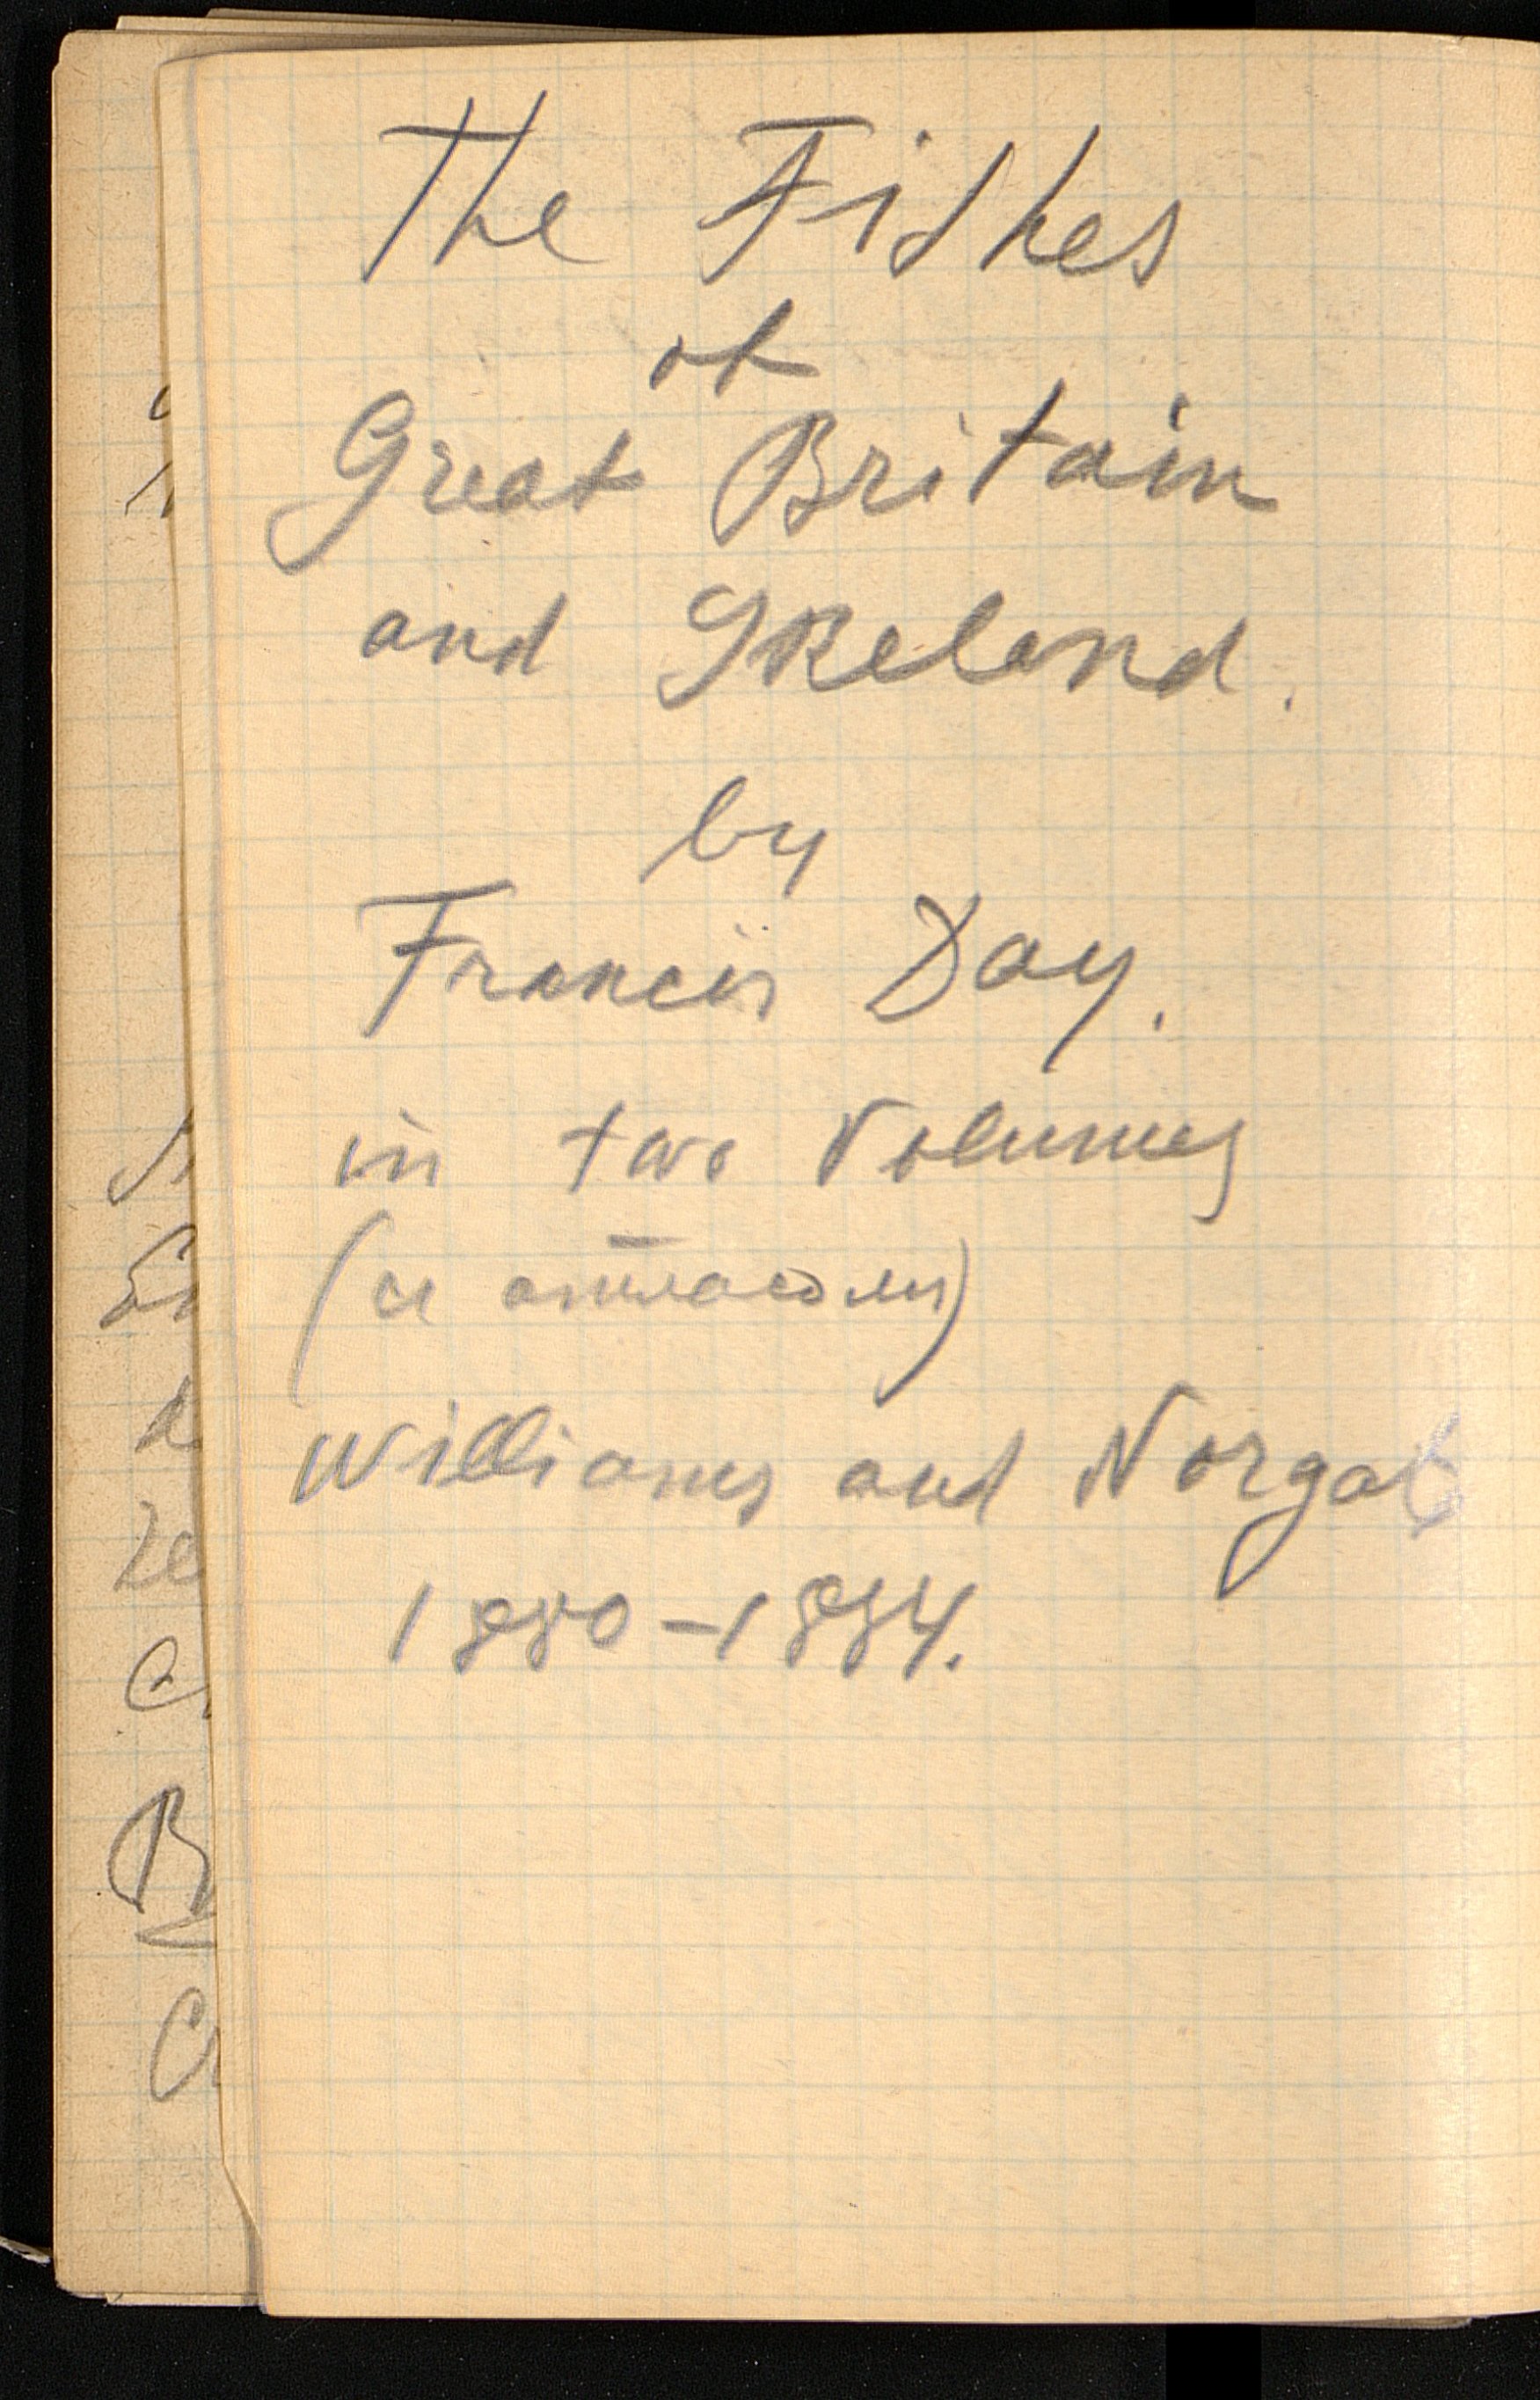 The Fishes
of
Great Britain
and IReland.
by
Francis Day.
in two Volumes
(с атласом)
Williams and Norgat
1880–1884.